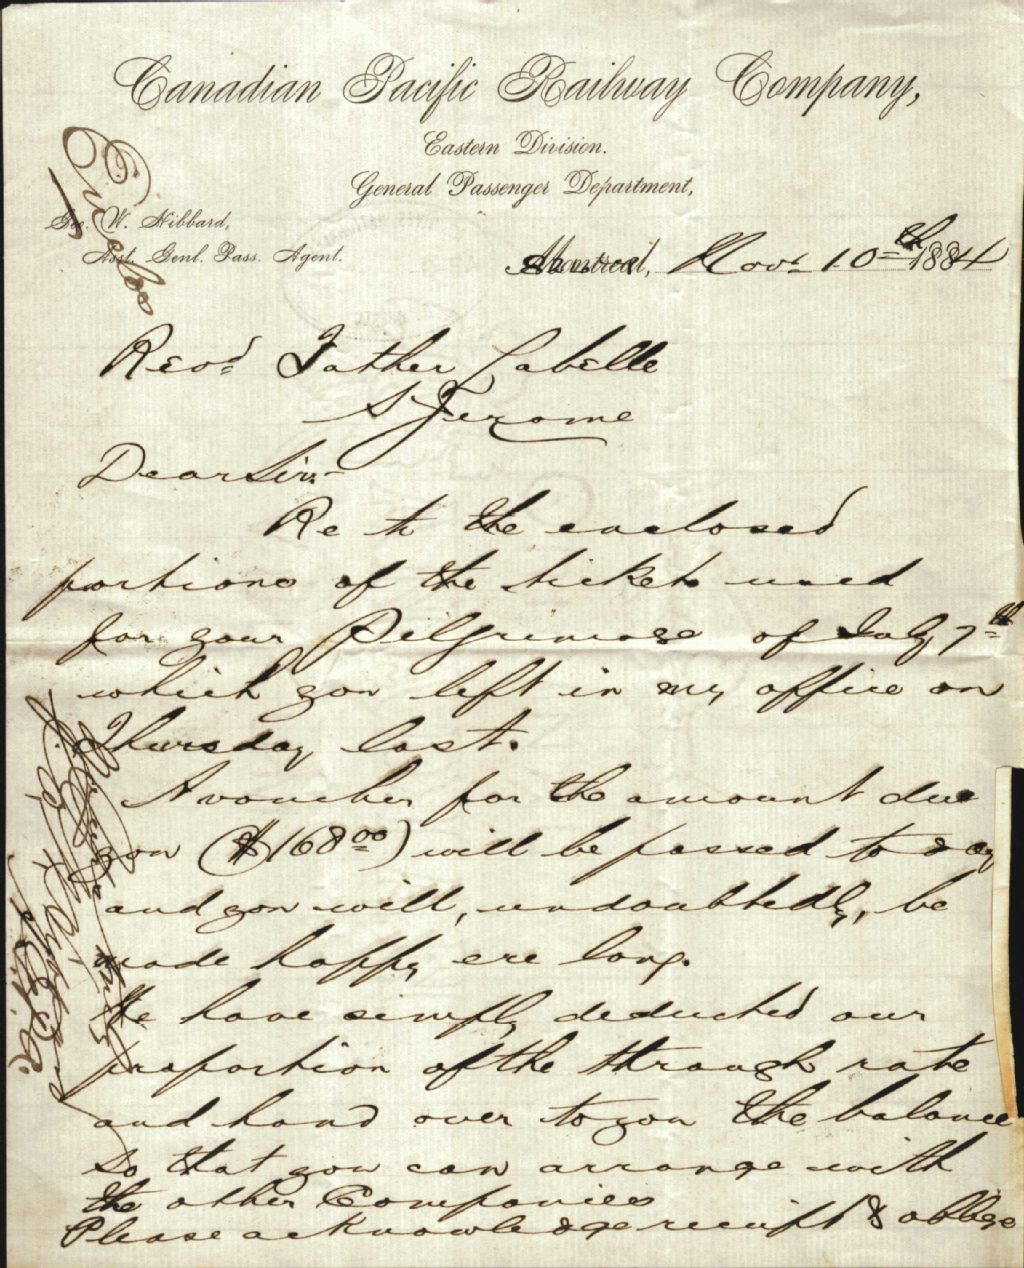 Canadian Pacific Railway Company,
Eastern Division.
General Passenger Department,
Geo. W. Hibbard,
Asst. Genl. Pass. Agent.
Enclos
Montreal, Nov. 10th 1884
Revd Father Labelle
St Jerome
Dear Sir,-
Re to the enclosed
portions of the tickets used
for your Pilgrimage of July 7th
which you left in my office on
Thursday last.
A voucher for the amount due
you ($168.00) will be passed to day
and you will, undoubtedly, be
made happy ere long.
We have simply deducted our
proportion of the through rate
and hand over to you the balance
So that you can arrange with
the other Companies
Please acknowledge receipt & oblige
Yours truly